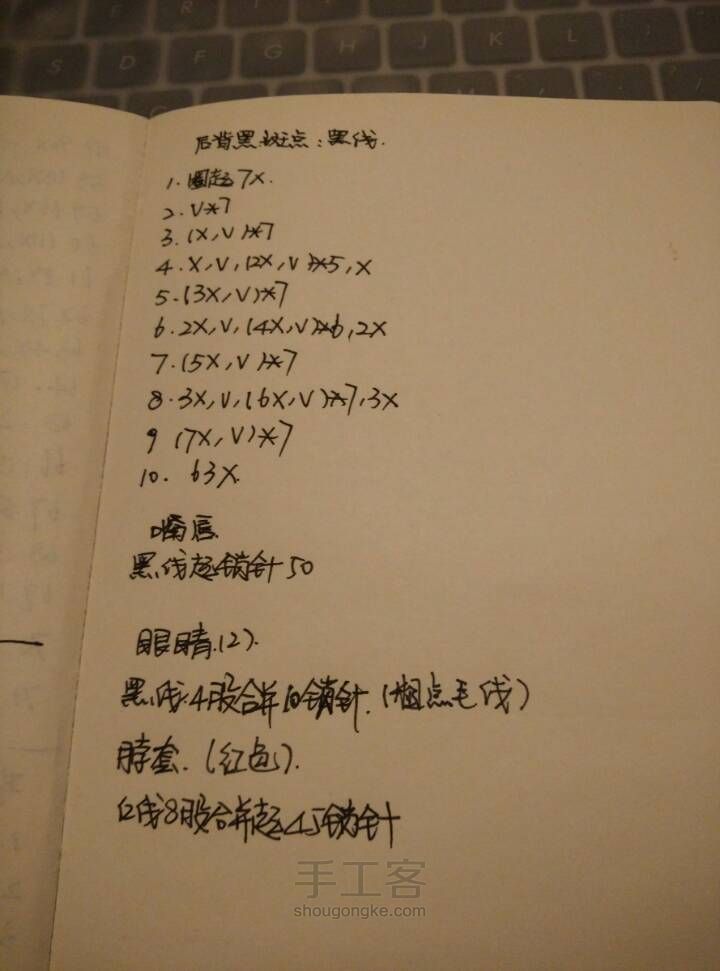 后背黑斑点:黑线.
1.圈起7X.
2.V*7
3.(X,V)*7
4.X,V,(2X,V)*5,X
5.(3X,V)*7
6.2X,V,(4X,V)*6,2X
7.(5X,V)*7
8.3X,V,(6X,V)*7,3X
9 (7X,V)*7
10. 63X.
嘴唇
黑线起锁针50
眼睛(2).
黑线4股合并10锁针.(烟点毛线)
脖套.(红色).
红线8股合并起45锁针
手工客
shougongke.com